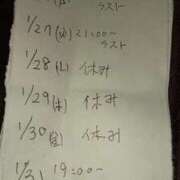 ラスト
1/27(火) 21:00〜
ラスト
1/28(水) 休み
1/29(木) 休み
1/30(金) 休み
1/31 19:00〜